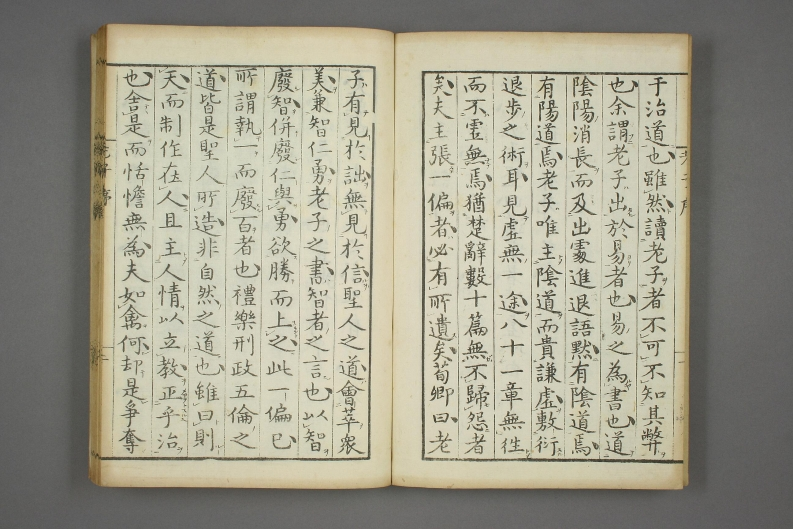 于治道也雖然讀老子者不可不知其弊
也余謂老子出於易者也易之為書也道
陰陽消長而及出處進退語默有陰道焉
有陽道焉老子唯主陰道而貴謙虛敷衍
退步之術耳見虛無一途八十一章無徃
而不虛無焉猶楚辭數十篇無不歸怨者
矣夫主張一偏者必有所遺矣荀卿曰老
子有見於詘無見於信聖人之道會萃衆
美兼智仁勇老子之書智者之言也以智
廢智併廢仁與勇欲勝而上之此一偏已
所謂執一而廢百者也禮樂刑政五倫之
道皆是聖人所造非自然之道也雖曰則
天而制作在人且主人情以立教正乎治
也舍是而恬憺無為夫如禽何却是爭奪